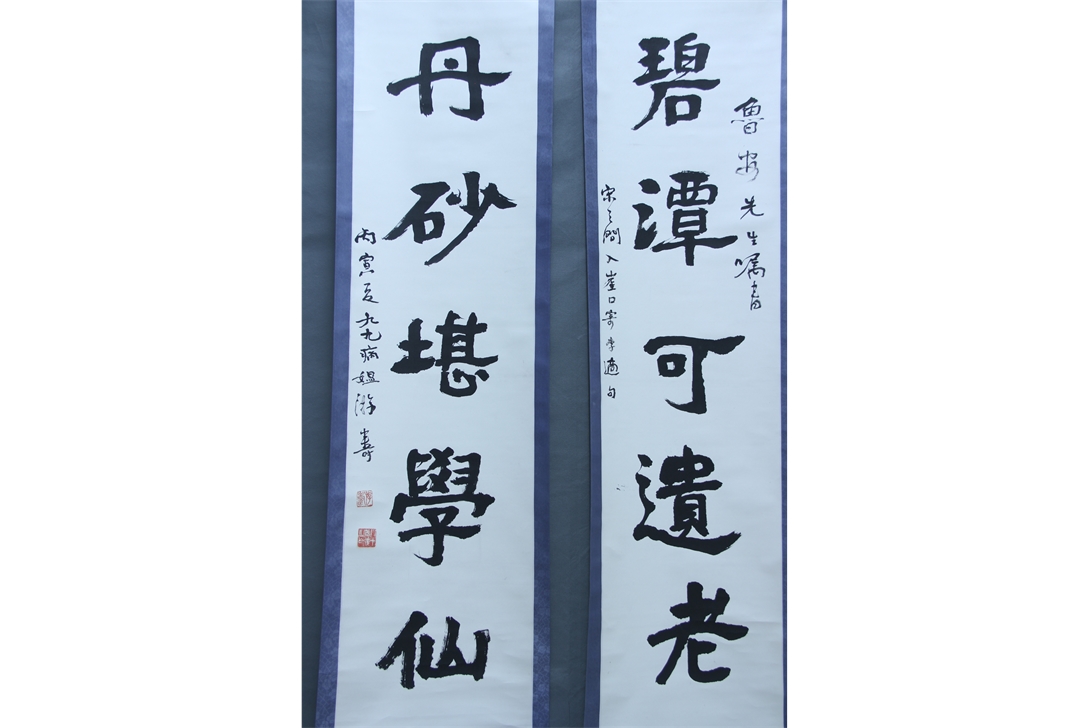 魯安先生嘱書
碧潭可遺老
宋之問入崖口寄李適句
丹砂堪學仙
丙寅夏九九病媼游壽